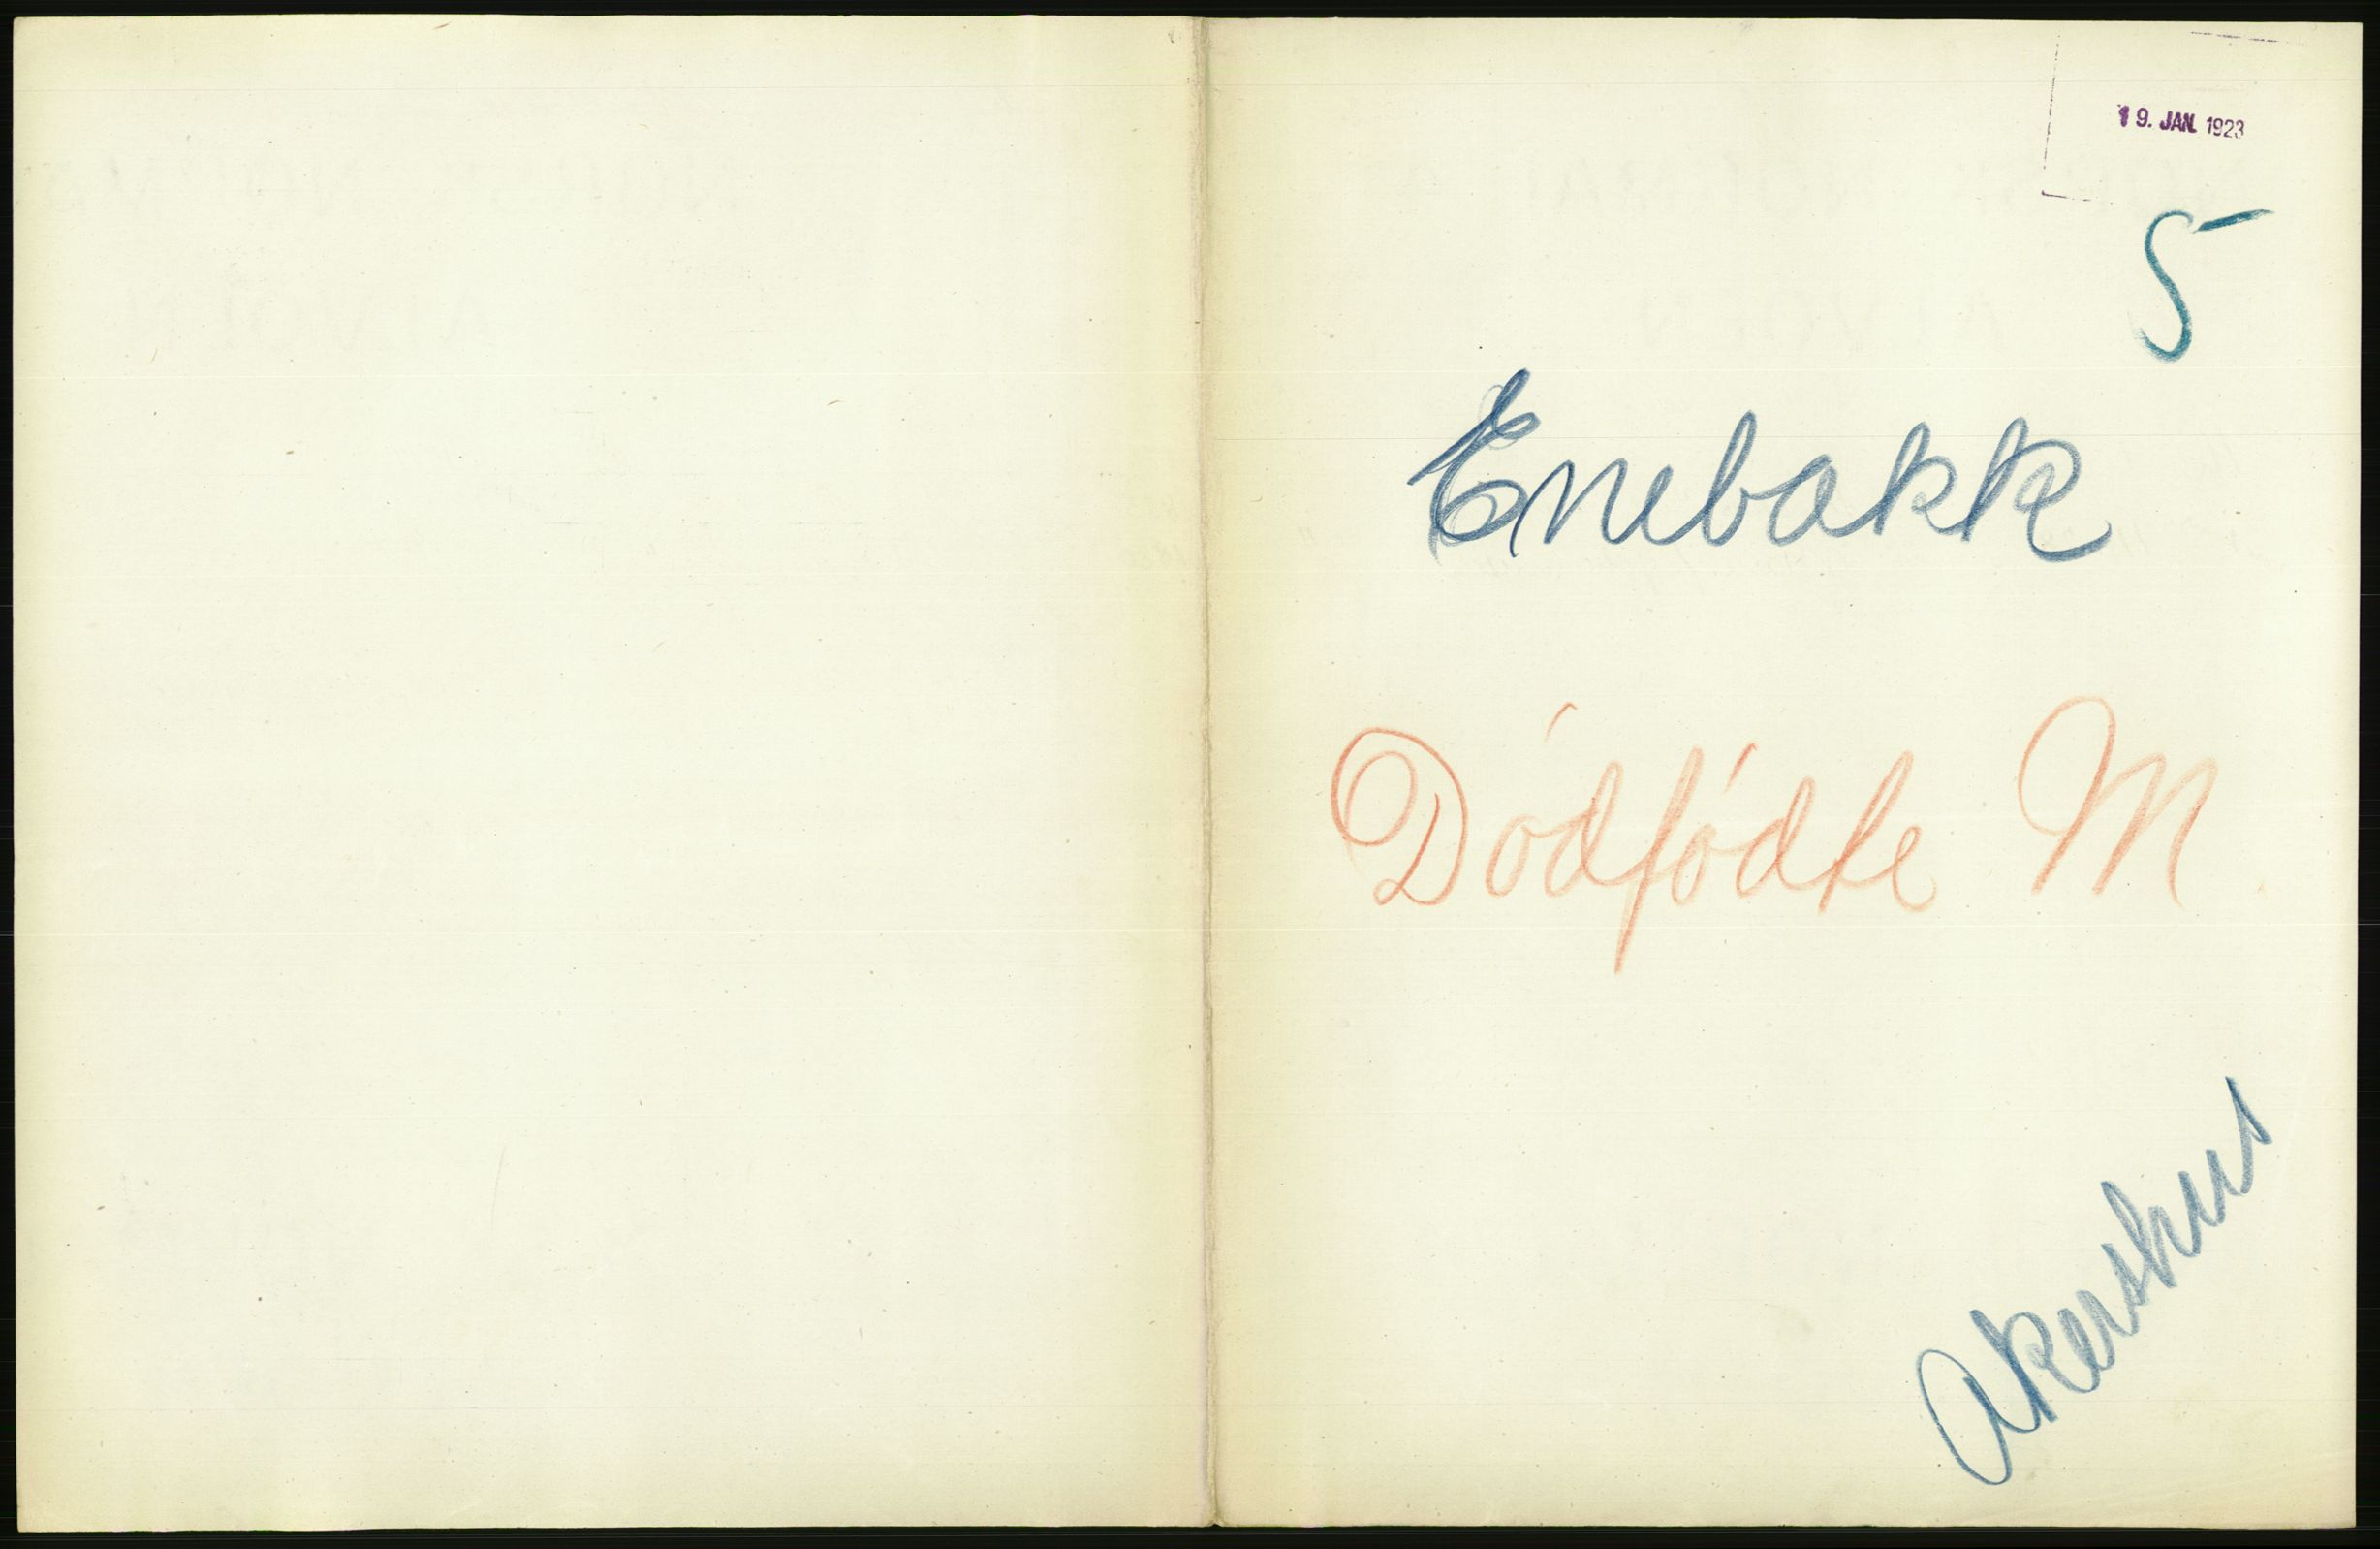 19. JAN. 1923
5
Enebakk
Dódfódte M.
Akershus